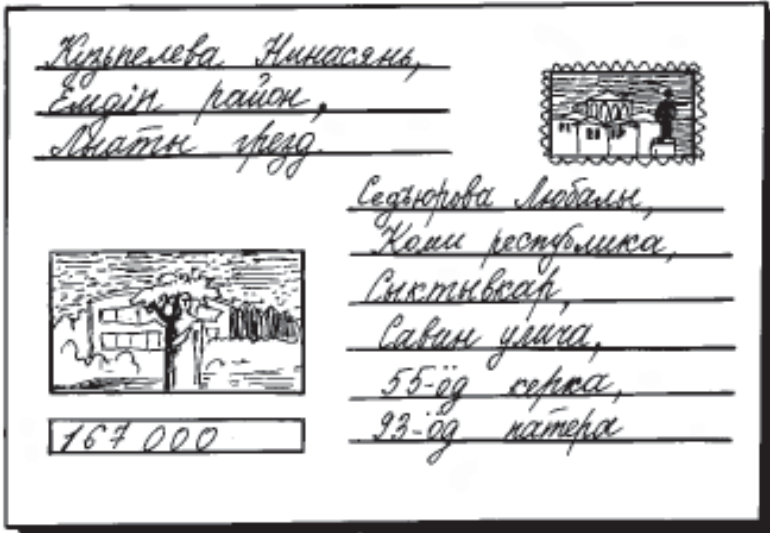 Кузьпелева Нинасянь,
Емдін район,
грезд.
Седъюрова Любалы,
Коми республика,
Сыктывкар,
Саван улича,
55-ӧд керка,
93-ӧд патера
167 000